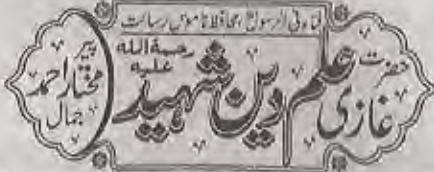 فنا فی الرسولؐ محافظ ناموس رسالت
حضرت
غازی
علم دین شہید
رحمۃ اللہ
علیہ
پیر
مختار احمد
جمال